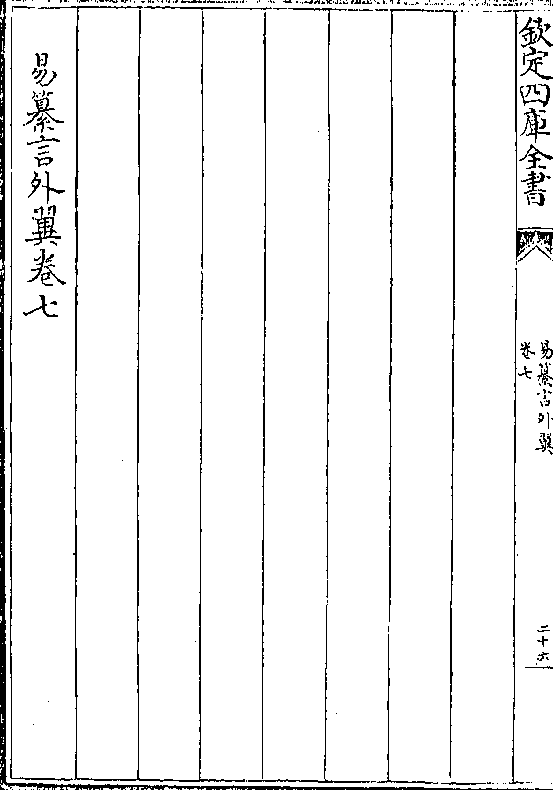 欽定四庫全書
易纂言外翼
卷七
二十六
易纂言外翼卷七